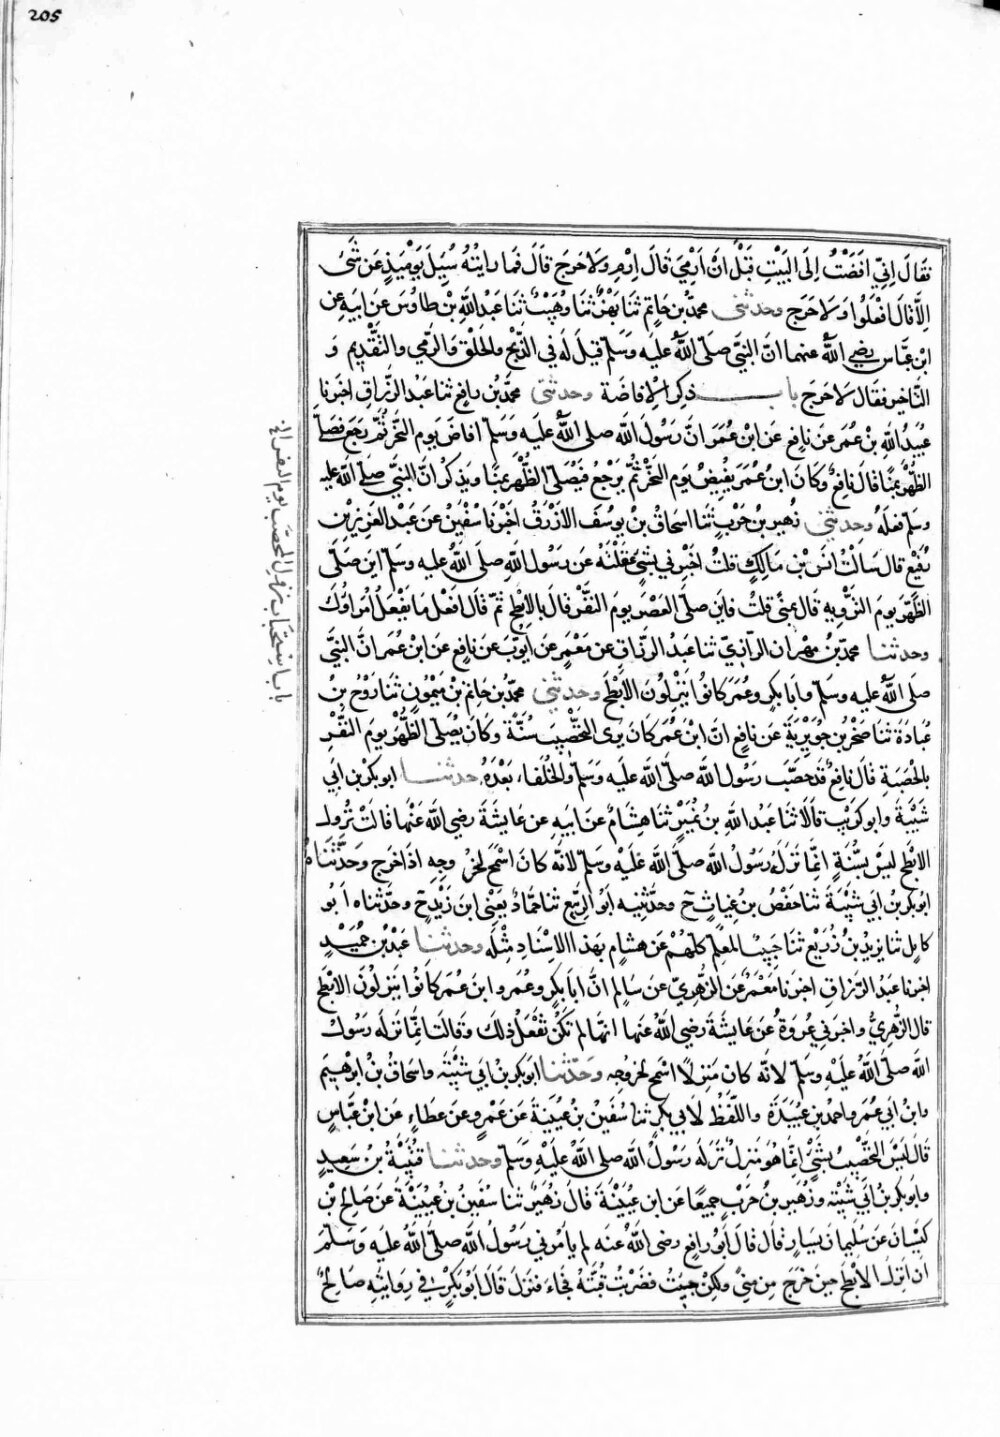 205
فقال اني افضت الى البيت قبل ان ارمي قال ارم ولا حرج قال فما رايته سيل يوميذ عن شى
الا قال افعلوا ولا حرج وحدثنى محمد بن حاتم ثنا بهز ثنا وهيب ثنا عبد الله بن طاوس عن ابيه عن
ابن عباس رضي الله عنهما ان النبي صلى الله عليه وسلم قيل له في الذبح والحلق والرمي والتقديم و
التاخير فقال لا حرج باب ذكر الافاضة وحدثنى محمد بن رافع ثنا عبد الرزاق اخبرنا
عبيد الله بن عمر عن نافع عن ابن عمر ان رسول الله صلى الله عليه وسلم افاض يوم النحر ثم رجع فصلى
الظهر بمنا قال نافع وكان ابن عمر يفيض يوم النحر ثم يرجع فيصلى الظهر بمنا ويذكر ان النبي صلى الله عليه
وسلم فعله وحدثنى زهير بن حرب ثنا اسحاق بن يوسف الازرق اخبرنا سفين عن عبد العزيز بن
رفيع قال سالت انس بن مالك قلت اخبرني بشئ عقلته عن رسول الله صلى الله عليه وسلم اين صلى
الظهر يوم التروية قال بمنى قلت فاين صلى العصر يوم النفر قال بالابطح ثم قال افعل ما يفعل امراوك
وحدثنا محمد بن مهران الرازي ثنا عبد الرزاق عن معمر عن ايوب عن نافع عن ابن عمر ان النبي
صلى الله عليه وسلم وابا بكر وعمر كانوا ينزلون الابطح وحدثنى محمد بن حاتم بن ميمون ثنا روح بن
عبادة ثنا صخر بن جويرية عن نافع ان ابن عمر كان يرى التحصيب سنة وكان يصلى الظهر يوم النفر
بالحصبة قال نافع قد حصب رسول الله صلى الله عليه وسلم والخلفاء بعده حدثنا ابو بكر بن ابي
شيبة وابو كريب قالا ثنا عبد الله بن نمير ثنا هشام عن ابيه عن عايشة رضي الله عنها قالت نزول
الابطح ليس بسنة انما نزله رسول الله صلى الله عليه وسلم لانه كان اسمح لخروجه اذا خرج وحدثناه
ابو بكر بن ابي شيبة ثنا حفص بن غياث ح وحدثنيه ابو الربيع ثنا حماد يعني ابن زيد ح وحدثناه ابو
كامل ثنا يزيد بن زريع ثنا حبيب المعلم كلهم عن هشام بهذا الاسناد مثله وحدثنا عبد بن حميد
اخبرنا عبد الرزاق اخبرنا معمر عن الزهري عن سالم ان ابا بكر وعمر وابن عمر كانوا ينزلون الابطح
قال الزهري واخبرني عروة عن عايشة رضي الله عنها انها لم تكن تفعل ذلك وقالت انما نزله رسول
الله صلى الله عليه وسلم لانه كان منزلا اسمح لخروجه وحدثنا ابو بكر بن ابي شيبة واسحاق بن ابرهيم
وابن ابي عمر واحمد بن عبدة واللفظ لابي بكر ثنا سفين بن عيينة عن عمرو عن عطاء عن ابن عباس
قال ليس التحصيب بشئ انما هو منزل نزله رسول الله صلى الله عليه وسلم وحدثنا قتيبة بن سعيد
وابو بكر بن ابي شيبة وزهير بن حرب جميعا عن ابن عيينة قال زهير ثنا سفين بن عيينة عن صالح بن
كيسان عن سليمان بن يسار قال قال ابو رافع رضى الله عنه لم يامرني رسول الله صلى الله عليه وسلم
ان انزل الابطح حين خرج من منى ولكن جيت فضربت قبته فجاء فنزل قال ابو بكر في روايته صالح
باب استحباب نزول المحصب يوم النفر